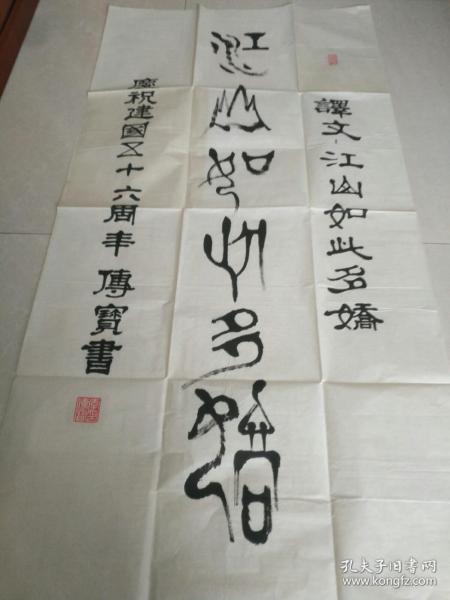 譯文:江山如此多嬌
江山如此多嬌
慶祝建國五十六周年 傳寶書
孔夫子旧书网
www.kongfz.com